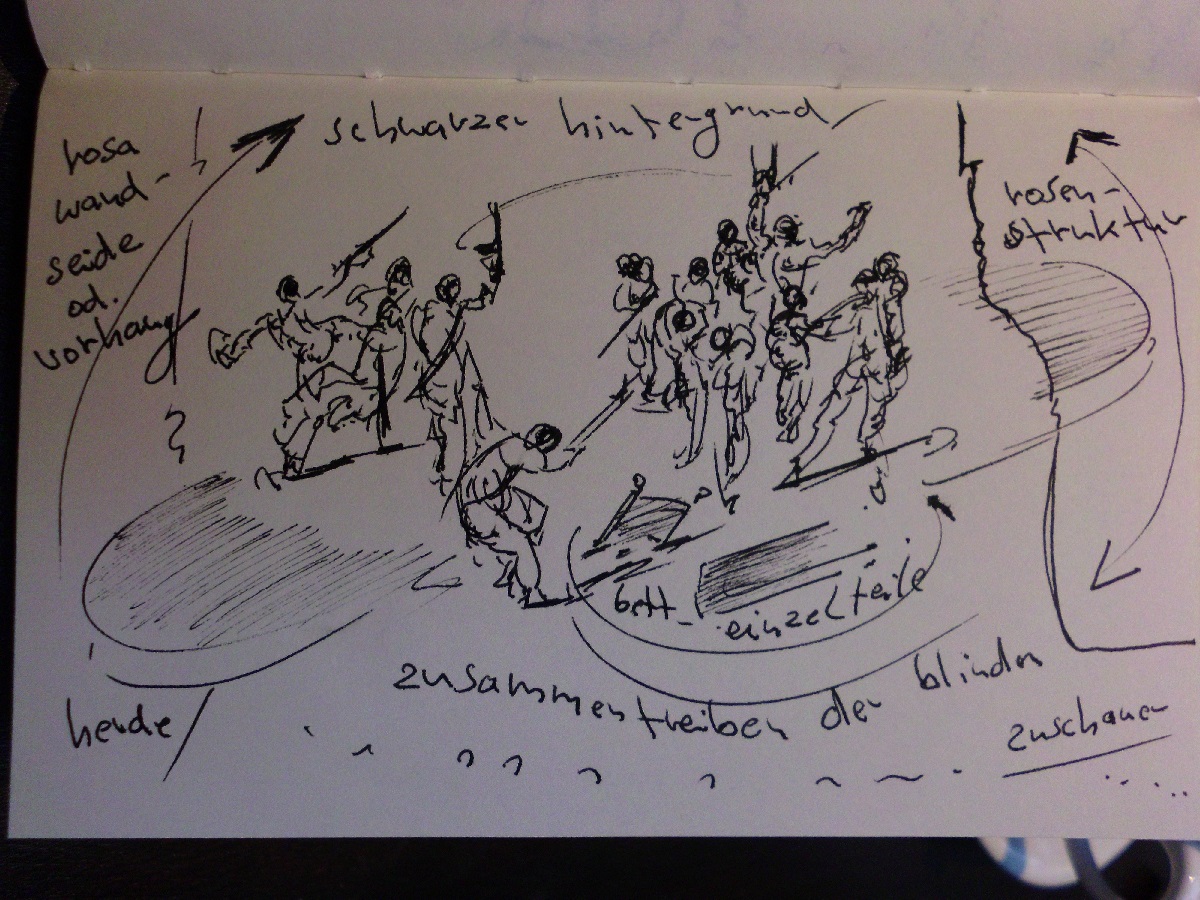 schwarzer hintergrund
rosa
wand-
seide
od.
vorhang
?
rosen-
struktur
bett-
einzelteile
zusammentreiben der blinden
herde
zuschauer